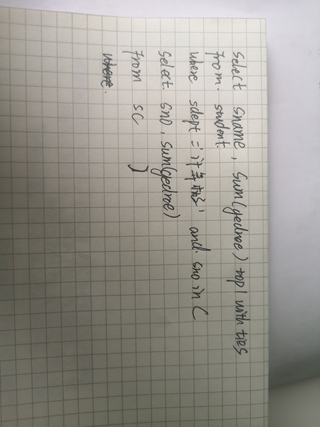 select sname, sum(gedrae) top 1 with ties
from. student
where sdept = '计算机系' and sno in (
select sno, sum(gedrae)
from sc )
where.